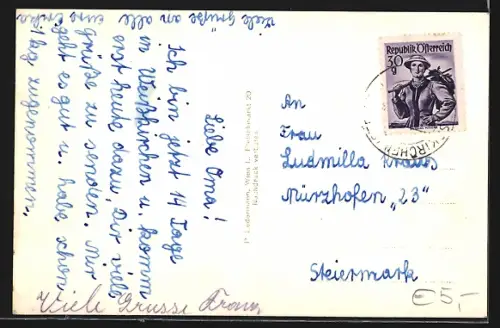 Liebe Oma!
Ich bin jetzt 14 Tage
in Weißkirchen u. komm
erst heute dazu, Dir viele
Grüße zu senden. Mir
geht es gut u. habe schon
1 kg zugenommen.
Viele Grüße an alle
eure Erika
Viele Grüsse Franz
P. Ledermann, Wien I., Fleischmarkt 20
Nachdruck verboten
Republik Österreich
30g
An
Frau
Ludmilla Kraus
Mürzhofen „23"
Steiermark
€5,-